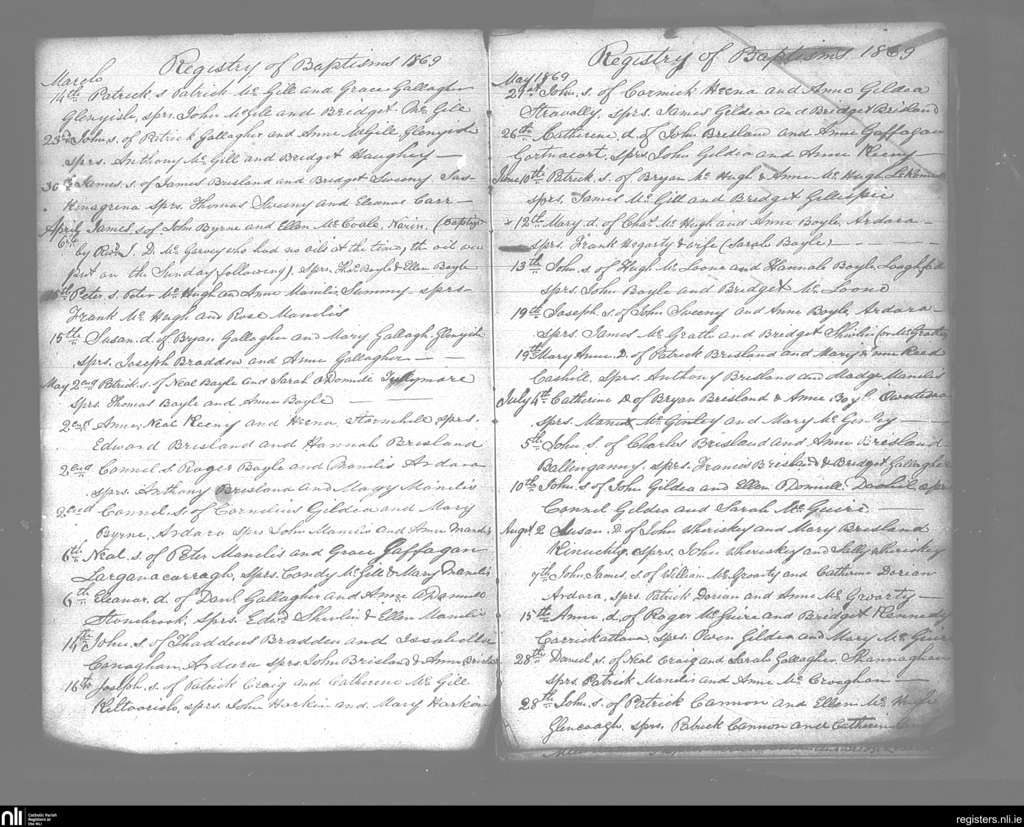 Registry of Baptisms 1869
March
14th Patrick s Patrick Mc Gill and Grace Gallagher
Glenyish, sprs. John McGill and Bridget Mc Gill
23rd John s. of Patrick Gallagher and Anne McGill Glenyish
sprs. Anthony Mc Gill and Bridget Haughey
30th James. s. of James Brisland and Bridget Sweeny
sprs. Thomas Sweeny and Eleonos Carr
April James s of John Byrne and Ellen Mc Coale, (Baptized
6th by Revd J. D. Mc Garvey who had no oils at the time, the oil were
put on the Sunday following), sprs. Thos. Boyle & Ellen Boyle
Peter s. Peter Mc Hugh and Anne Manilis Summy sprs
Frank Mc Hugh and Rose Manilis
15th Susan. d. of Bryan Gallagher and Mary Gallagh. Glenyish
sprs. Joseph Bradden and Anne Gallagher
May 2nd Patrick. s. of Neal Boyle and Sarah O Donnile Tullymore
Sprs. Thomas Boyle and Anne Boyle
2nd Anne, Neal Keeny and sprs.
Edward Brisland and Hannah Brisland
2nd Connel s Roger Boyle and Manilis Ardara
sprs. Anthony Brisland and Magy Manilis
2nd Connel. s. of Cornelius Gildea and Mary
Byrne, Ardara sprs John Manilis and Anne Manilis
6th Neal s. of Peter Manilis and Grace Gaffagan
Larganacarragh, sprs. Condy McGill & Mary Manilis
6th Eleanor. d. of Danl Gallagher and Anne O Donnile
Stonebrook. Sprs. Edwd Shovlin & Ellen Manilis
14th John. s. of Thaddeus Bradden and Issabella
Conaghan, Ardara sprs John Brisland & Anne
16th Joseph. s. of Patrick Craig and Catherine Mc Gill
Kiltoorish, sprs. John Harkin and Mary Harkin
Registry of Baptisms 1869
May 1869
John, s. of Cormick and Anne Gildea
Stravally. sprs. James Gildea and Bridget Brisland
26th Catherine. d. of John Breslaw and Anne Gaffagan
Gortnacart, sprs John Gildea and Anne Keeny
June 10th Patrick. s. of Bryan Mc Hugh & Anne Mc Hugh
sprs. James Mc Gill and Bridget Gillespie
12th Mary d. of Chas. Mc Hugh and Anne Boyle, Ardara
sprs. Frank Hegarty & wife (Sarah Boyle)
13th John. s. of Hugh Mc Loone and Hannah Boyle, Loughfad
sprs. John Boyle and Bridget Mc Loone
19th Joseph. s. of John Sweeny and Anne Boyle, Ardara
sprs. James Mc Grath and Bridget Shovlin
19th Mary Anne. D. of Patrick Brisland and Mary Anne
Cashill, Sprs. Anthony Brisland and Madge Manilis
July 4th Catherine D of Bryan Brisland & Anne Boyl
sprs. Manus Mc Ginley and Mary Mc Ginley
5th John. s. of Charles Brisland and Anne Brisland
Ballenganny. sprs. Francis Brisland & Bridget Gallagher
10th John. s of John Gildea and Ellen O Donnell.
Connel Gildea and Sarah Mc Guire
Augt. 2 Susan. D. of John Sheriskey and Mary Brisland
sprs. John Sheriskey and Sally Sheriskey
7th John, James, s. of William Mc Groarty and Catherine Dorian
Ardara, sprs Patrick Dorian and Anne Mc Groarty
15th Anne. d. of Roger Mc Guire and Bridget Kennedy
Sprs. Owen Gildea and Mary Mc Guire
28th Daniel s. of Neal Craig and Sarah Gallagher, Shannaghan
sprs. Patrick Manilis and Anne Mc Croaghan
28th John. s. of Patrick Cannon and Ellen Mc Hugh
sprs. Patrick Cannon and Catherine
nli
Catholic Parish
Registers at
the NLI
registers.nli.ie